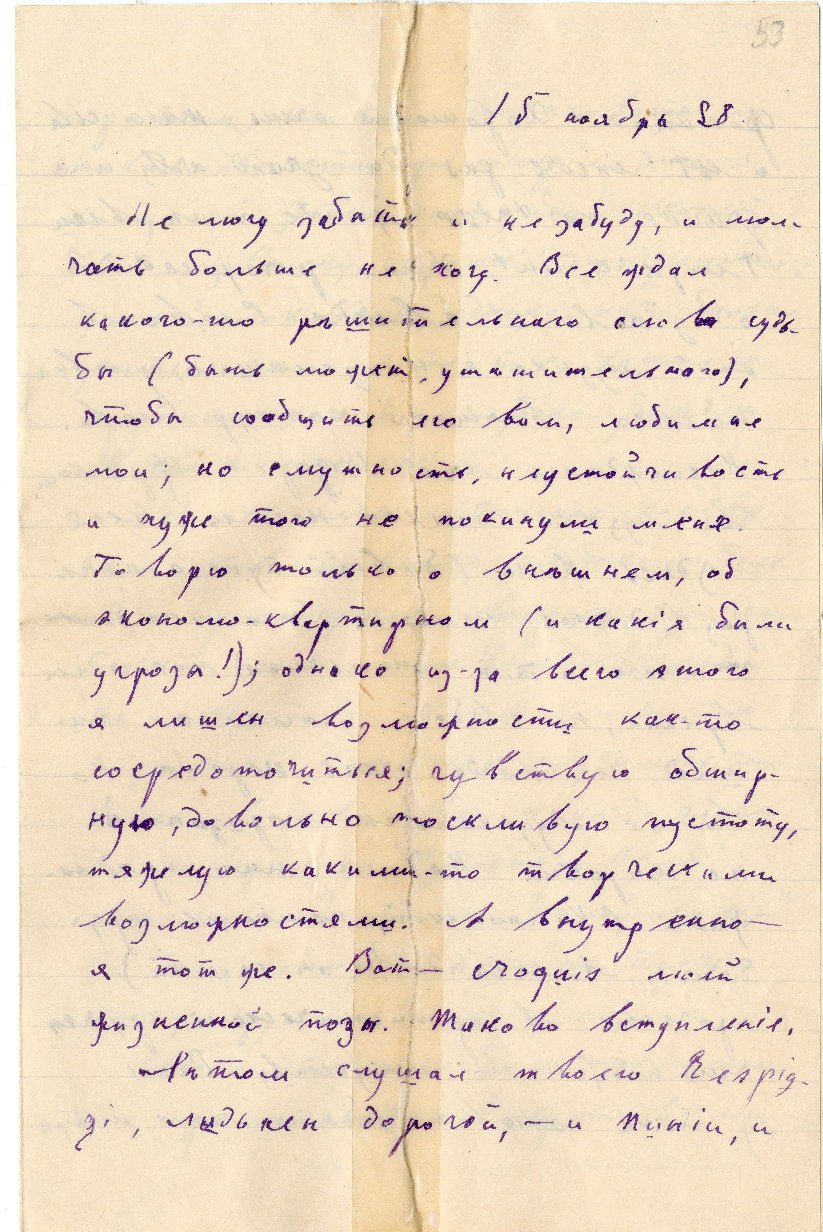 53
15 ноября 28.
Не могу забыть и не забуду, и мол-
чать больше не хочу. Все ждал
какого-то рѣшительнаго слова судь-
бы (быть может, утѣшительнаго),
чтобы сообщить его вам, любимые
мои; но смутность, неустойчивость
и хуже того не покинули меня.
Говорю только о внѣшнем, об
экономо-квартирном (и какія были
угрозы!); однако из-за всего этого
я лишен возможности как-то
сосредоточиться; чувствую обшир-
ную, довольно тоскливую пустоту,
тяжелую какими-то творческими
возможностями. А внутренно —
я тот же. Вот — croquis моей
жизненной позы. Таково вступленіе.
Лѣтом слушал твоего Respig-
hi, дорогой, — и Пиніи, и